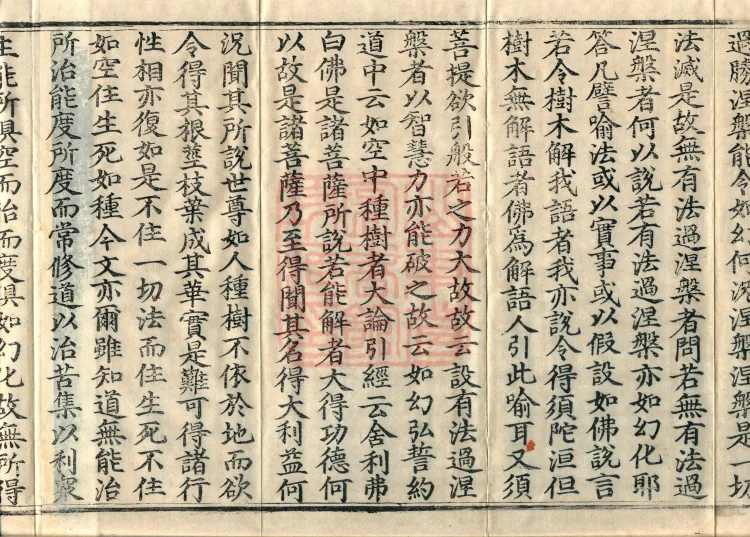 過勝涅槃能令如幻何況涅槃涅槃是一切
法滅是故無有法過涅槃者問若無有法過
涅槃者何以說若有法過涅槃亦如幻化耶
答凡譬喻法或以實事或以假設如佛說言
若令樹木解我語者我亦說令得須陀洹但
樹木無解語者佛爲解語人引此喻耳又須
菩提欲引般若之力大故故云設有法過涅
槃者以智慧力亦能破之故云如幻弘誓約
道中云如空中種樹者大論引經云舍利弗
白佛是諸菩薩所說若能解者大得功德何
以故是諸菩薩乃至得聞其名得大利益何
況聞其所說世尊如人種樹不依於地而欲
令得其根莖枝葉成其華實是難可得諸行
性相亦復如是不住一切法而住生死不住
如空住生死如種今文亦爾雖知道無能治
所治能度所度而常修道以治苦集以利眾
生能所俱空而治而度俱如幻化故無所得